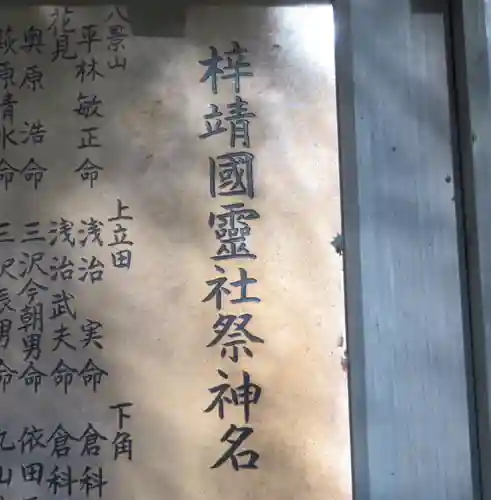 梓靖國靈社祭神名
八景山
平林敏正命
上立田
浅治実命
下角
倉科
花見
浅治武夫命
倉科
奥原浩命
三沢今朝男命
依田
荻原清水命
三沢辰男命
丸山